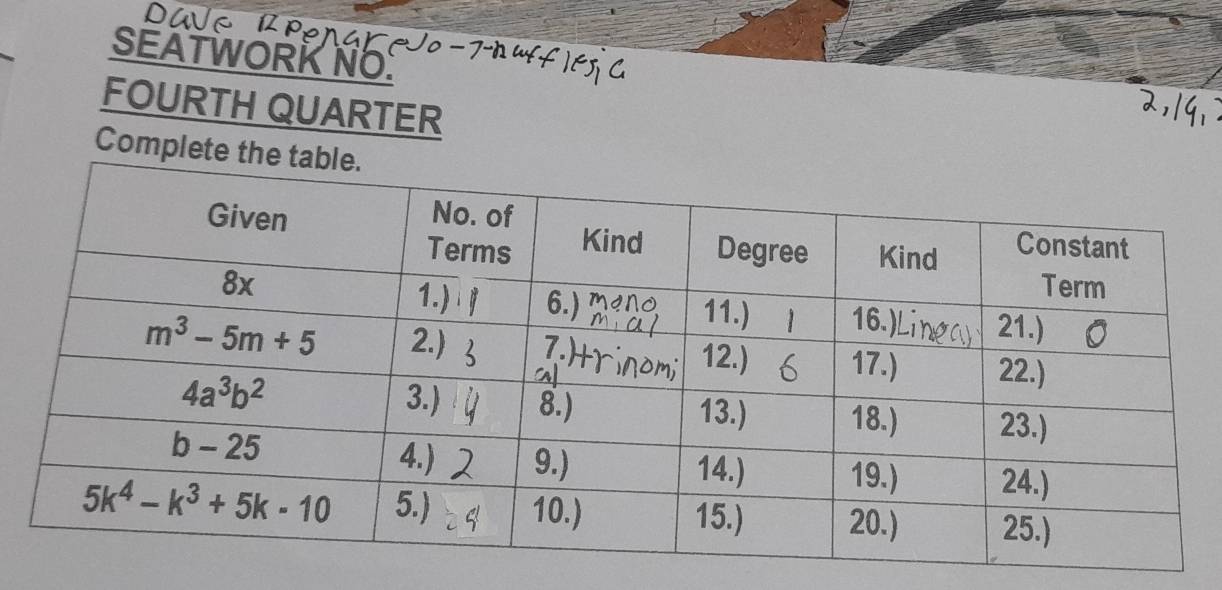 Dave
SEATWORK NO.
2,19,
FOURTH QUARTER
Complete the table.
Given No. of Terms Kind Degree Kind Constant Term
8x 1.) 1 6.) mono mial 11.) 1 16.) Linear 21.) 0
m³ – 5m + 5 2.) 3 7.) trinomi al 12.) 6 17.) 22.)
4a³b² 3.) 4 8.) 13.) 18.) 23.)
b – 25 4.) 2 9.) 14.) 19.) 24.)
5k⁴ – k³ + 5k - 10 5.) 10.) 15.) 20.) 25.)